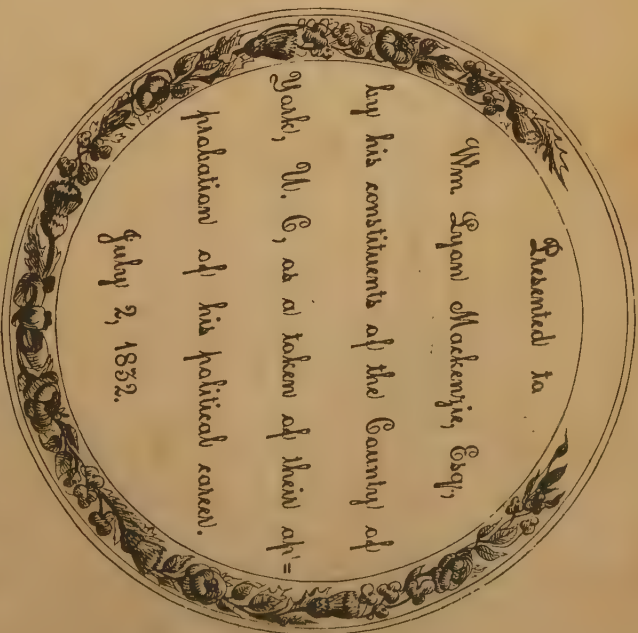 Presented to
Wm. Lyon Mackenzie, Esq.,
by his constituents of the County of
York, U. C., as a token of their ap=
probation of his political career.
July 2, 1832.